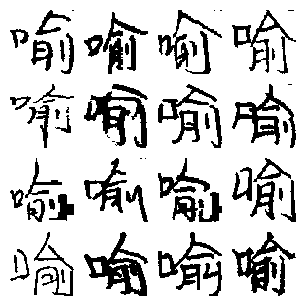 喻喻喻喻
喻喻喻喻
喻喻喻喻
喻喻喻喻